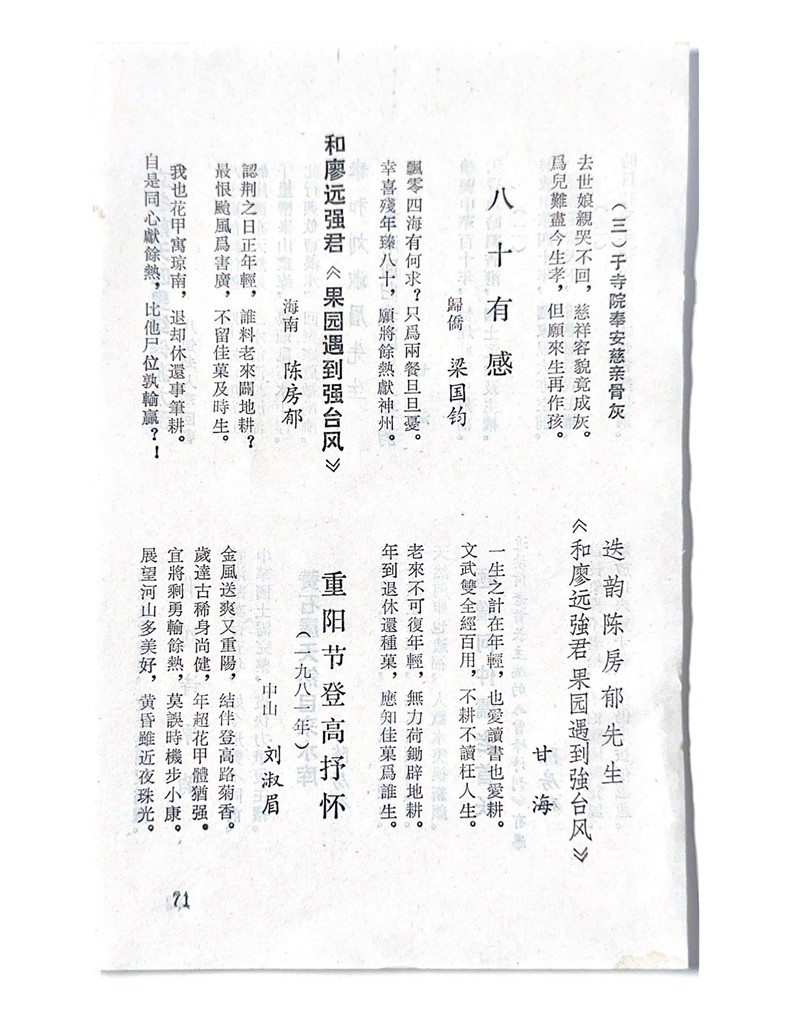 （三）于寺院奉安慈亲骨灰
去世娘親哭不回，慈祥容貌竟成灰。
爲兒難盡今生孝，但願來生再作孩。
八十有感
歸僑 梁国钧
飄零四海有何求？只爲兩餐旦旦憂。
幸喜殘年臻八十，願將餘熱獻神州。
和廖远强君《果园遇到强台风》
海南 陈房郁
認荆之日正年輕，誰料老來闢地耕？
最恨颱風爲害廣，不留佳菓及時生。
我也花甲寓琼南，退却休還事筆耕。
自是同心獻餘熱，比他尸位孰輸贏？！
迭韵陈房郁先生
《和廖远強君果园遇到強台风》
甘海
一生之計在年輕，也愛讀書也愛耕。
文武雙全經百用，不耕不讀枉人生。
老來不可復年輕，無力荷鋤辟地耕。
年到退休還種菓，應知佳菓爲誰生。
重阳节登高抒怀
（一九八一年）
中山 刘淑眉
金風送爽又重陽，結伴登高路菊香。
歲達古稀身尚健，年超花甲體猶强。
宜將剩勇輸餘熱，莫誤時機步小康。
展望河山多美好，黄昏雖近夜珠光。
71